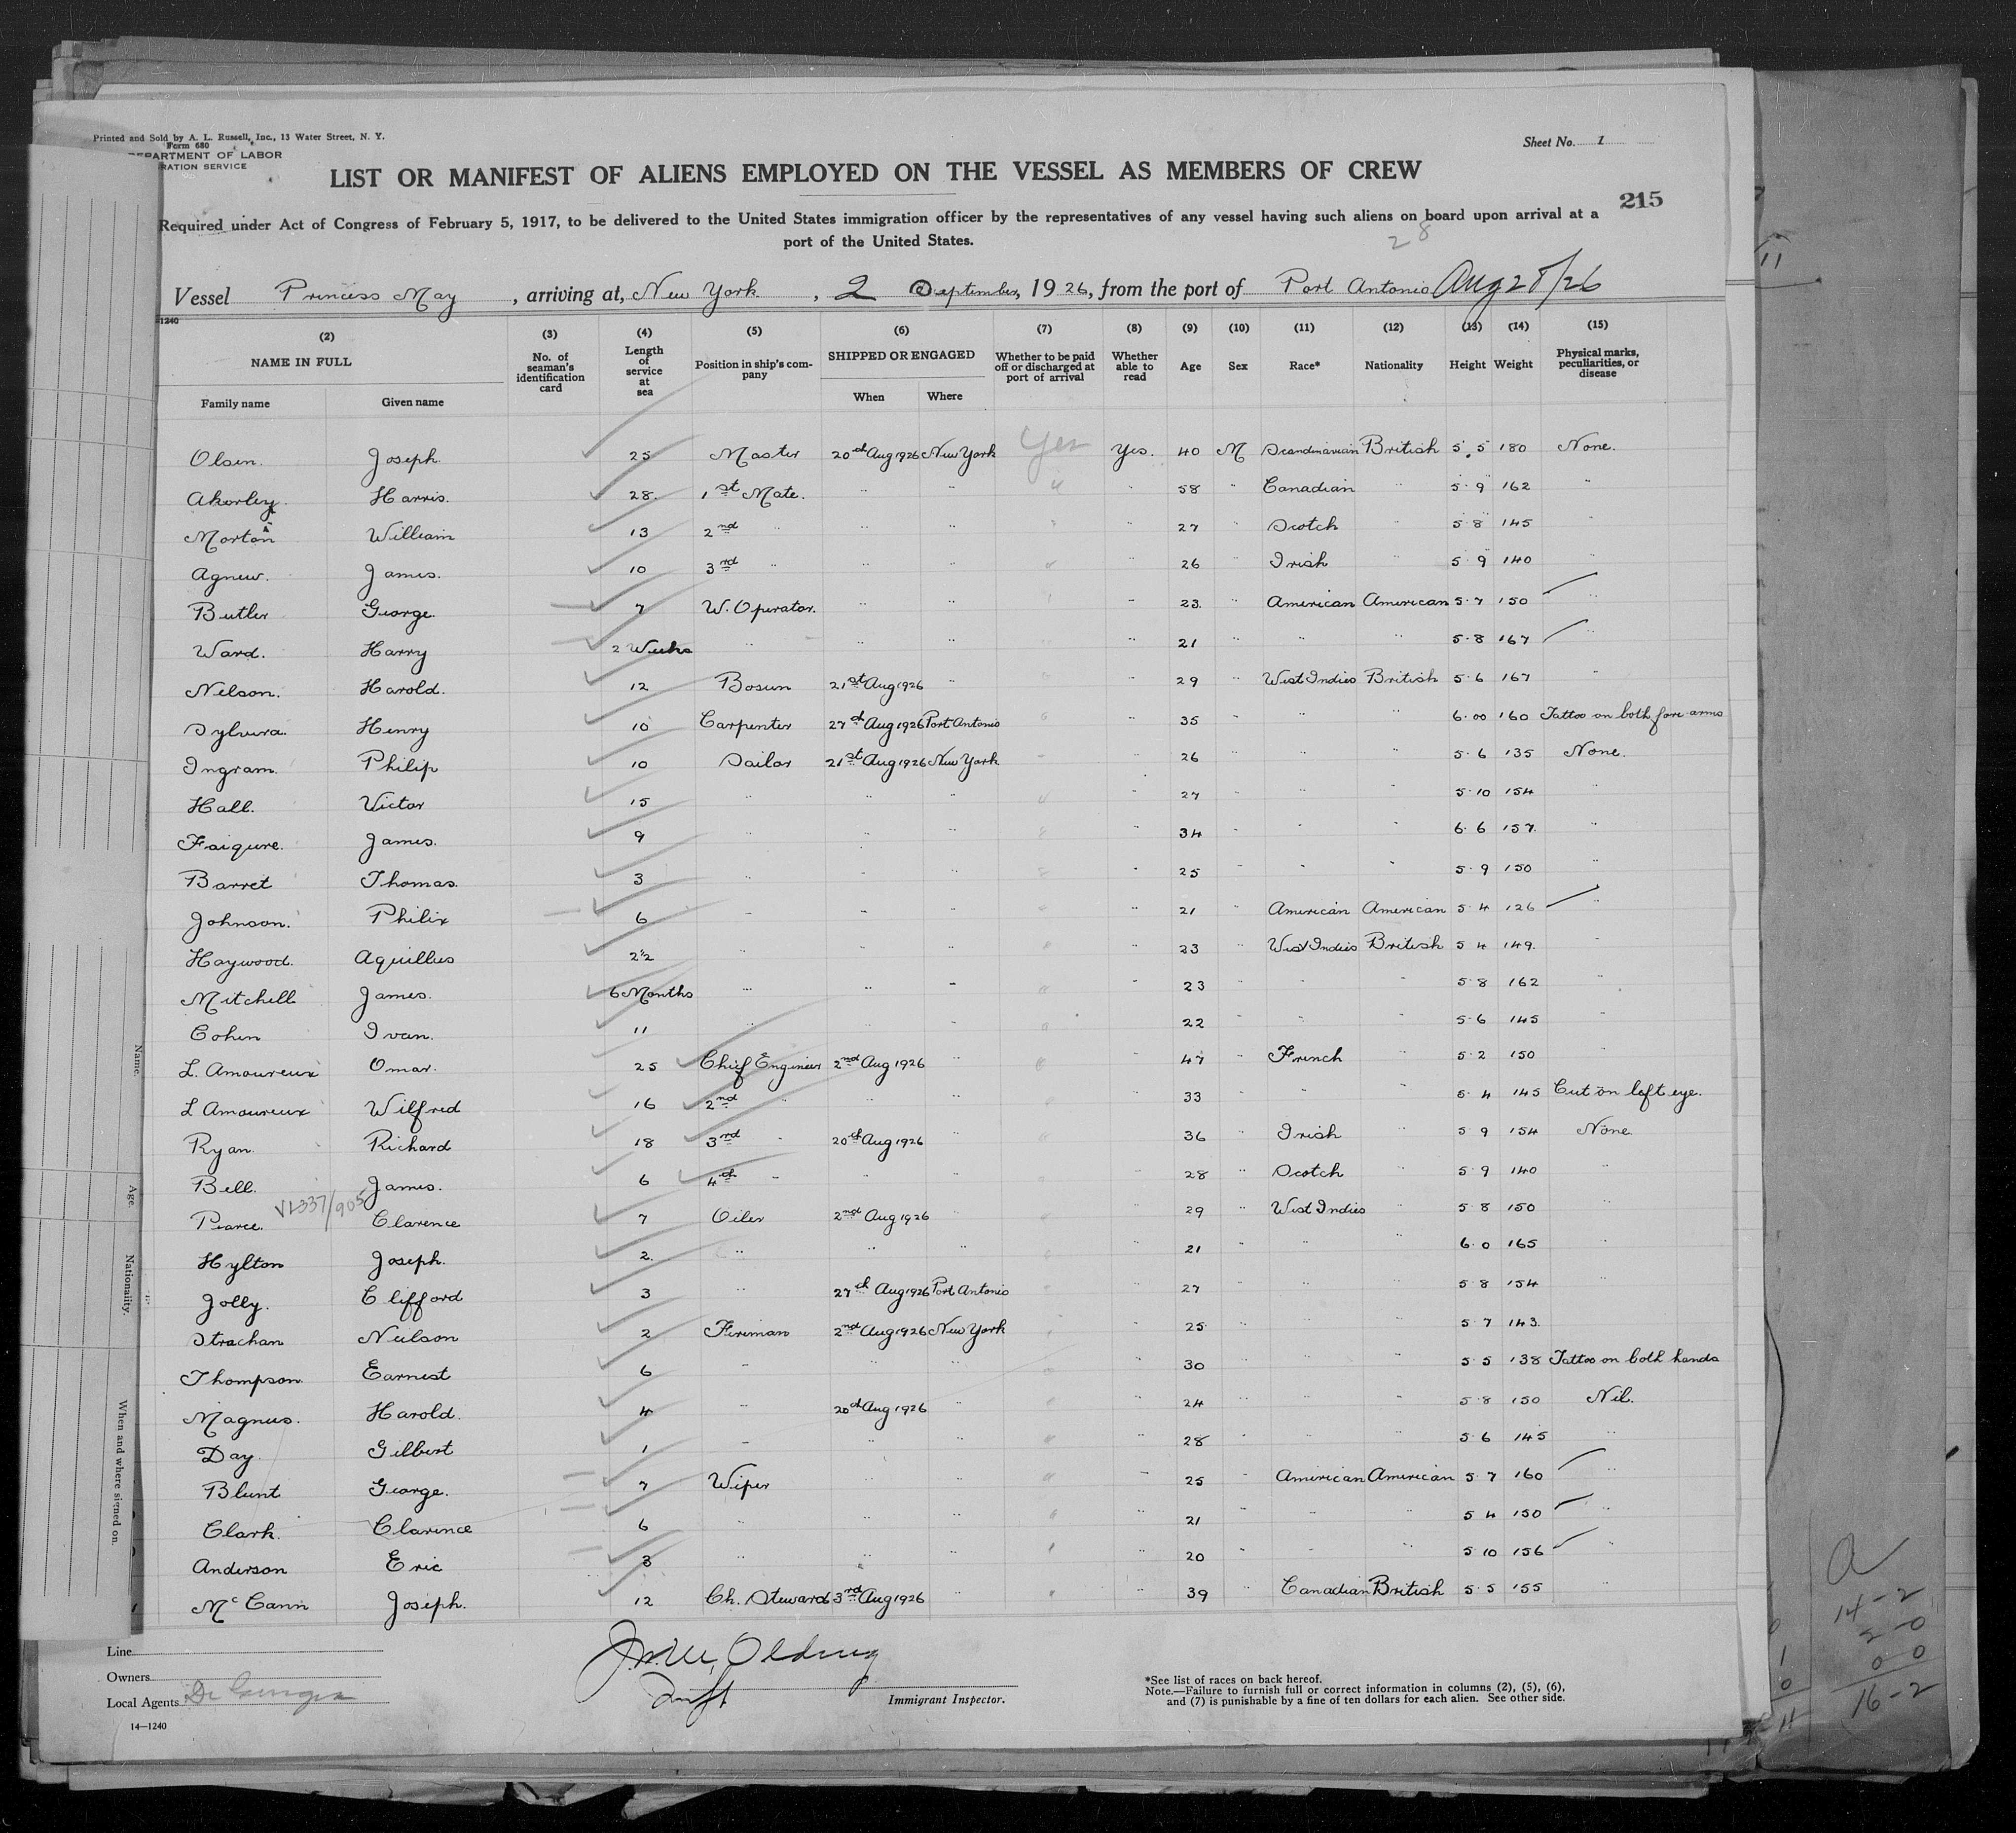 Printed and Sold by A. L. Russell, Inc., 13 Water Street, N. Y.
Form 680
DEPARTMENT OF LABOR
RATION SERVICE
Sheet No. 1
LIST OR MANIFEST OF ALIENS EMPLOYED ON THE VESSEL AS MEMBERS OF CREW
215
Required under Act of Congress of February 5, 1917, to be delivered to the United States immigration officer by the representatives of any vessel having such aliens on board upon arrival at a
port of the United States.
28
Vessel Princess May, arriving at, New York, 2 September, 1926, from the port of Port Antonio Aug 28/26
1240
(2) (3) (4) (5) (6) (7) (8) (9) (10) (11) (12) (13) (14) (15)
NAME IN FULL No. of seaman's identification card Length of service at sea Position in ship's company SHIPPED OR ENGAGED Whether to be paid off or discharged at port of arrival Whether able to read Age Sex Race* Nationality Height Weight Physical marks, peculiarities, or disease
Family name Given name When Where
Olsen. Joseph. 25 Master 20th Aug 1926 New York Yes Yes. 40 M Scandinavian British 5.5 180 None.
Akerley. Harris. 28. 1st Mate. " " " " 58 " Canadian " 5 9 162 "
Morton William 13 2nd " " " " " 27 " Scotch " 5 8 145 "
Agnew. James. 10 3rd " " " " " 26 " Irish " 5 9 140 "
Butler George. 7 W. Operator. " " " " 23. " American American 5.7 150 "
Ward. Harry 2 Weeks " " " " " 21 " " " 5.8 167 "
Nelson. Harold. 12 Bosun 21st Aug 1926 " " " 29 " West Indies British 5.6 167 "
Sylvera. Henry 10 Carpenter 27th Aug 1926 Port Antonio " " 35 " " " 6.00 160 Tattoo on both fore arms
Ingram. Philip 10 Sailor 21st Aug 1926 New York " " 26 " " " 5.6 135 None.
Hall. Victor 15 " " " " " 27 " " " 5.10 154 "
Faiqure. James. 9 " " " " " 34 " " " 6.6 157. "
Barret Thomas. 3 " " " " " 25 " " " 5.9 150 "
Johnson. Philix 6 " " " " " 21 " American American 5.4 126 "
Haywood. Aquillus 2½ " " " " " 23 " West Indies British 5 4 149. "
Mitchell James. 6 Months " " " " " 23 " " " 5.8 162 "
Cohen Ivan. 11 " " " " " 22 " " " 5.6 145 "
L. Amoureux Omar. 25 Chief Engineer 2nd Aug 1926 " " " 47 " French " 5.2 150 "
L Amoureux Wilfred 16 2nd " " " " " 33 " " " 5.4 145 Cut on left eye.
Ryan. Richard 18 3rd " 20th Aug 1926 " " " 36 " Irish " 5 9 154 None.
Bell. James. 6 4th " " " " " 28 " Scotch " 5 9 140 "
VL337/905
Pearce. Clarence 7 Oiler 2nd Aug 1926 " " " 29 " West Indies " 5 8 150 "
Hylton Joseph. 2. " " " " " 21 " " " 6.0 165 "
Jolly. Clifford 3 " 27th Aug 1926 Port Antonio " " 27 " " " 5 8 154 "
Strachan Neilson 2 Fireman 2nd Aug 1926 New York " " 25 " " " 5 7 143.
Thompson. Earnest 6 " " " " " 30 " " " 5 5 138 Tattoo on both hands
Magnus. Harold. 4 " 20th Aug 1926 " " " 24 " " " 5.8 150 Nil.
Day. Gilbert 1 " " " " " 28 " " " 5.6 145 "
Blunt George. 7 Wiper " " " " 25 " American American 5 7 160 "
Clark. Clarence 6 " " " " " 21 " " " 5 4 150 "
Anderson Eric 3 " " " " " 20 " " " 5 10 156 "
McCann Joseph. 12 Ch. Steward 3rd Aug 1926 " " " 39 " Canadian British 5.5 155 "
Name.
Age.
Nationality.
When and where signed on.
Line
Owners
Local Agents
Immigrant Inspector.
14—1240
*See list of races on back hereof.
Note.—Failure to furnish full or correct information in columns (2), (5), (6),
and (7) is punishable by a fine of ten dollars for each alien. See other side.
11
a
14-2
2-0
0 0
16-2